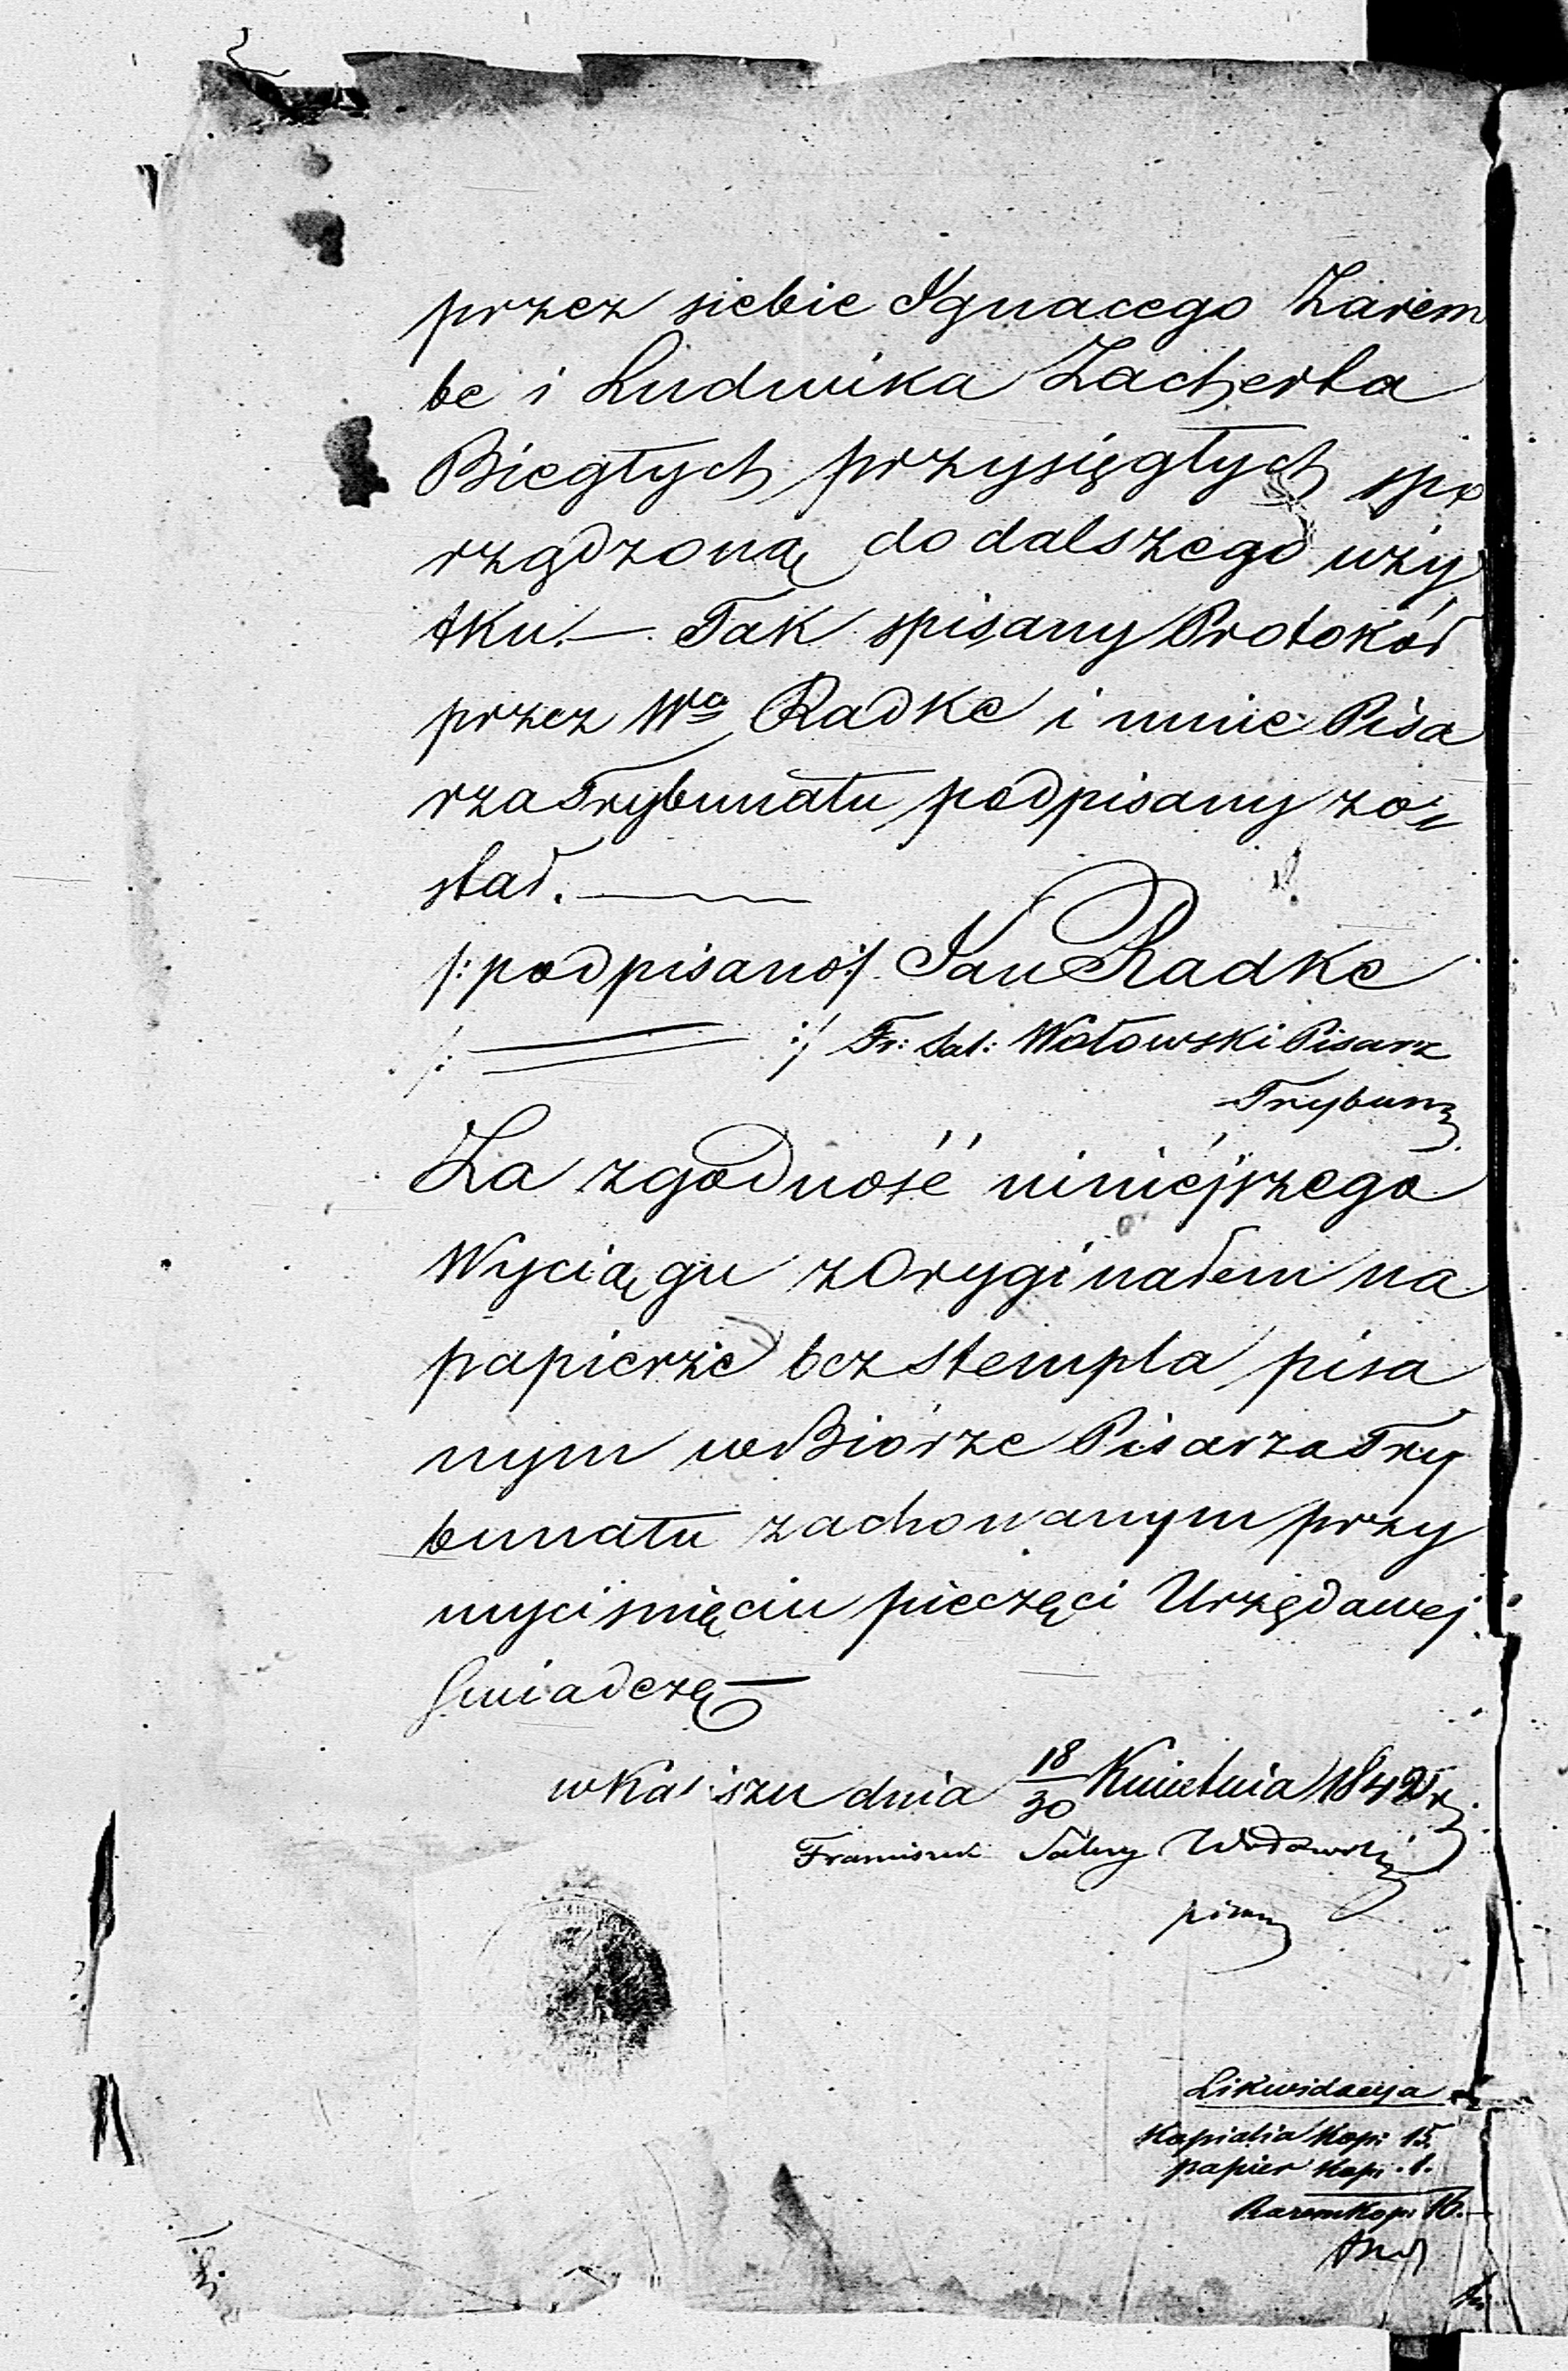 przez siebie Ignacego Zarem
be i Ludwika Zacherta
Biegłych przysięgłych spo
rządzoną do dalszego uży
tku. — Tak spisany Protokół
przez Wgo Radke i mnie Pisa
rza Trybunału podpisany zo⸗
stał. —
/: podpisano :/ Jan Radke
/: ═══ :/ Fr: Sal: Wołowski Pisarz
Trybun
Za zgodność niniéjszego
Wyciągu z Oryginałem na
papierze bez stempla pisa
nym w Biórze Pisarza Try
bunału zachowanym przy
wyciśnięciu pieczęci Urzędowej
Swiadczę —
w Kaliszu dnia 18/30 Kwietnia 184 r
Franciszek Salezy Wołowski
pisarz
Likwidacya
Kopialia Kop: 15.
papier Kop. 1.
Razem Kop: 16. —